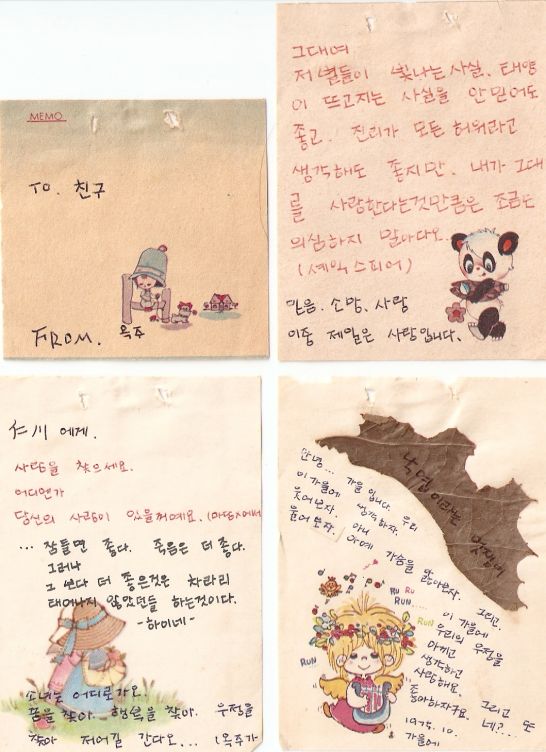 MEMO
TO. 친구
FROM. 옥주
그대여
저 별들이 빛나는 사실, 태양
이 뜨고지는 사실을 안 믿어도
좋고. 진리가 모든 허위라고
생각해도 좋지만. 내가 그대
를 사랑한다는것만큼은 조금도
의심하지 말아다오.
(세익스피어)
믿음. 소망. 사랑
이중 제일은 사랑입니다.
仁川 에게.
사람을 찾으세요.
어디엔가
당신의 사랑이 있을꺼예요.
... 잠들면 좋다. 죽음은 더 좋다.
그러나
그 보다 더 좋은것은 차라리
태어나지 않았던들 하는것이다.
-하이네-
소녀는 어디로가요.
꿈을 찾아. 행복을 찾아. 우정을
찾아 저어길 간다오... (옥주가
낙엽이라는
안녕... 가을 입니다. 우리
이 가을에 생각하자.
웃어보자. 아니
울어보자. 아예 가슴을 앓아보자.
그리고.
이 가을에
우리의 우정을
아끼고
생각하고
사랑해요.
좋아하자구요. 그리고 또
네?...
1975. 10.
가을에
RU RU
RUN....
RUN
RUN